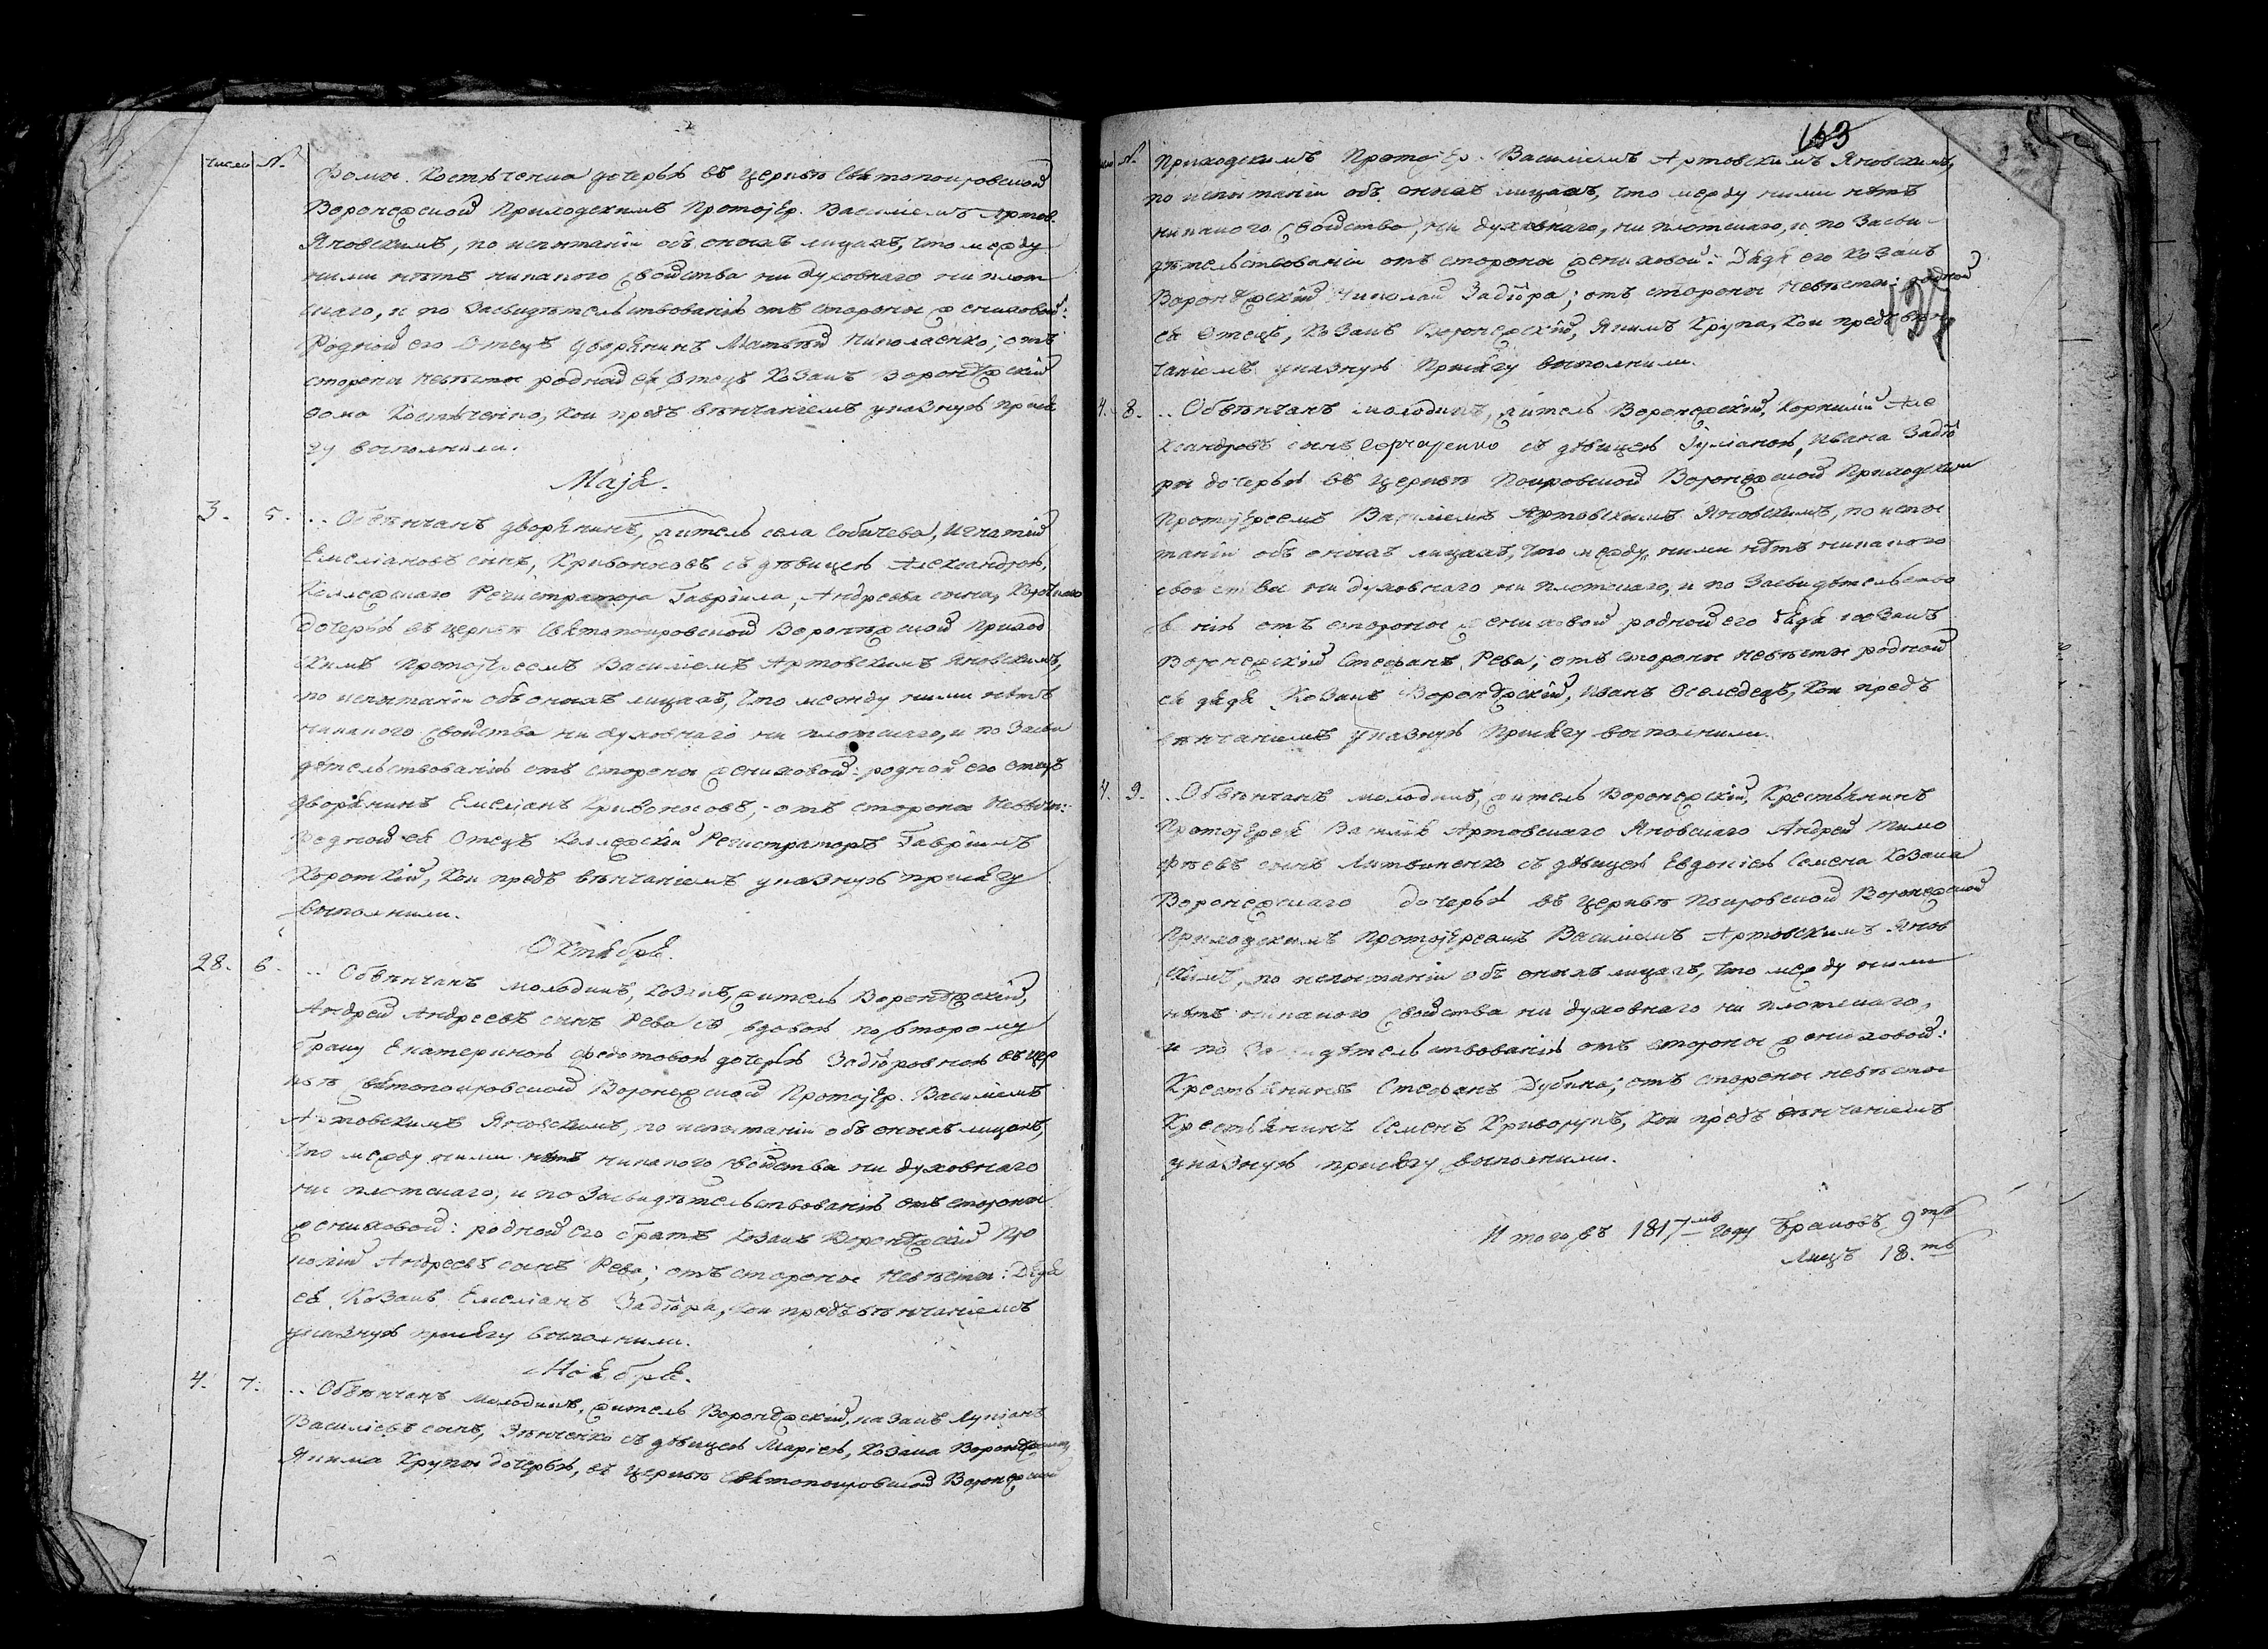 число №
Ѳомы Костѣченка дочерью въ церквѣ Свѧтопокровской
Воронежской Приходскимъ Протоіер. Василіемъ Артов.
Яновскимъ, по испытаніи объ оныхъ лицахъ, что между
ними нѣтъ никакого свойства ни духовнаго ни плот
скаго, и по засвидѣтельствованію отъ стороны жениховой:
Родной его Отецъ дворѧнинъ Матвѣй Николаенко; отъ
стороны невѣсты родной еѧ Отецъ Козакъ Воронѣжскій
Ѳома Костѣченко, кои предъ вѣнчаніемъ указную присѧ
гу выполнили.
Маіѧ.
3. 5. Обвѣнчанъ дворѧнинъ, житель села Собичева, Игнатій
Емеліановъ сынъ, Кривоносовъ съ дѣвицею Александрою,
Коллежскаго Регистратора Гавріила, Андреева сына, Короткаго
дочерью въ церквѣ Свѧтопокровской Воронѣжской Приход
скимъ Протоіереемъ Василіемъ Артовскимъ Яновскимъ,
по испытаніи объ оныхъ лицахъ, что между ними нѣтъ
никакого свойства ни духовнаго ни плотскаго, и по засви
дѣтельствованію отъ стороны жениховой: родной его отецъ
дворѧнинъ Емеліанъ Кривоносовъ; отъ стороны невѣсты:
родной еѧ Отецъ Коллежскій Регистраторъ Гавріилъ
Короткій, кои предъ вѣнчаніемъ указную присѧгу
выполнили.
Октѧбрѧ.
28. 6. Обвѣнчанъ молодикъ, козакъ, житель Воронѣжскій,
Андрей Андреевъ сынъ Рева съ вдовою по второму
браку Екатериною Ѳедотовою дочерью Задѣровною въ цер
квѣ Свѧтопокровской Воронежской Протоіер. Василіемъ
Артовскимъ Яновскимъ, по испытаніи объ оныхъ лицахъ,
что между ними нѣтъ никакого свойства ни духовнаго
ни плотскаго, и по засвидѣтельствованію отъ стороны
жениховой: родной его братъ Козакъ Воронѣжскій Про
копій Андреевъ сынъ Рева; отъ стороны невѣсты: Дѧдѧ
еѧ Козакъ Емеліанъ Задѣра, кои предъ вѣнчаніемъ
указную присѧгу выполнили.
Ноѧбрѧ.
4. 7. Обвѣнчанъ молодикъ, житель Воронѣжскій, козакъ Лукіанъ
Василіевъ сынъ, Зѣнченко съ дѣвицею Маріею, Козака Воронѣжскаго
Якима Крупы дочерью, въ церквѣ Свѧтопокровской Воронежской
163
№ Приходскимъ Протоіер. Василіемъ Артовскимъ Яновскимъ,
по испытаніи объ оныхъ лицахъ, что между ними нѣтъ
никакого свойства, ни духовнаго, ни плотскаго, и по засви
дѣтельствованіи отъ стороны жениховой: Дѧдѧ его Козакъ
Воронѣжскій Николай Задѣра; отъ стороны невѣсты: родной
еѧ Отецъ, Козакъ Воронежскій, Якимъ Крупа, кои предъ вѣн
чаніемъ указную Присѧгу выполнили.
4. 8. Обвѣнчанъ молодикъ, житель Воронежскій, Корнилій Але
ксандровъ сынъ съ дѣвицею Іуліаною, Ивана Задѣ
ры дочерью въ церквѣ Покровской Воронежской Приходскимъ
Протоіереемъ Василіемъ Артовскимъ Яновскимъ, по испы
таніи объ оныхъ лицахъ, что между ними нѣтъ никакого
свойства ни духовнаго ни плотскаго, и по засвидѣтельство
ванію отъ стороны жениховой родной его дѧдѧ козакъ
Воронежскій Стефанъ Рева; отъ стороны невѣсты родной
еѧ дѧдѧ Козакъ Воронѣжскій, Иванъ Оселедецъ, кои предъ
вѣнчаніемъ указную Присѧгу выполнили.
4. 9. Обвѣнчанъ молодикъ, житель Воронежскій, Крестьѧнинъ
Протоіереѧ Василіѧ Артовскаго Яновскаго Андрей Тимо
ѳѣевъ сынъ Литвиненко съ дѣвицею Евдокіею Семена Козака
Воронежскаго дочерью въ церквѣ Покровской Воронежской
Приходскимъ Протоіереемъ Василіемъ Артовскимъ Янов
скимъ, по испытаніи объ оныхъ лицахъ, что между ними
нѣтъ никакого свойства ни духовнаго ни плотскаго,
и по засвидѣтельствованію отъ стороны жениховой:
Крестьѧнинъ Стефанъ Дубина; отъ стороны невѣсты
Крестьѧнинъ Семенъ Криворукъ, кои предъ вѣнчаніемъ
указную присѧгу выполнили.
Итого въ 1817мъ году браковъ 9ть
Лицъ 18.ть